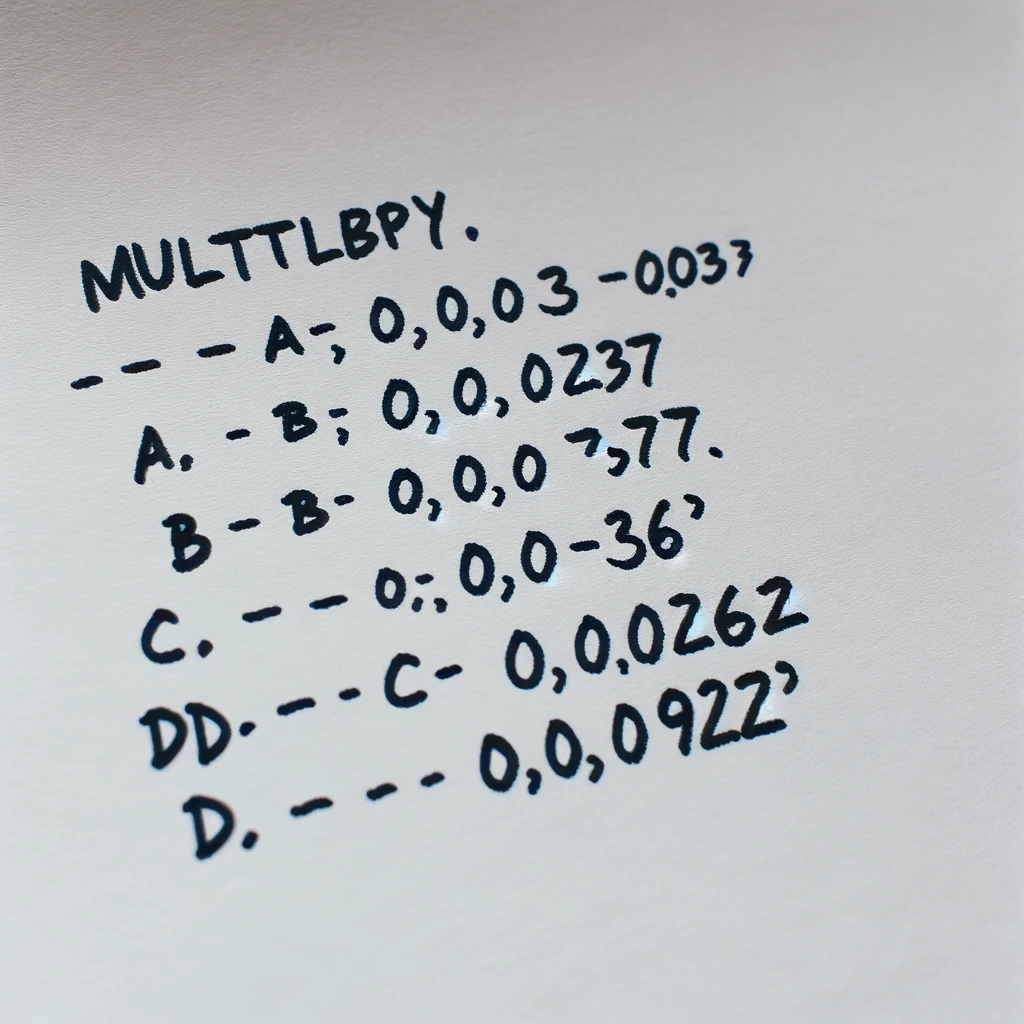 MULTTLBPY.
- - - A-; 0,0,03 -0,033
A. - B; 0,0,0237
B - B- 0,0,0 7,77.
C. - - 0;; 0,0-36’
DD. - - - C- 0,0,0262
D. - - - 0,0,0922’